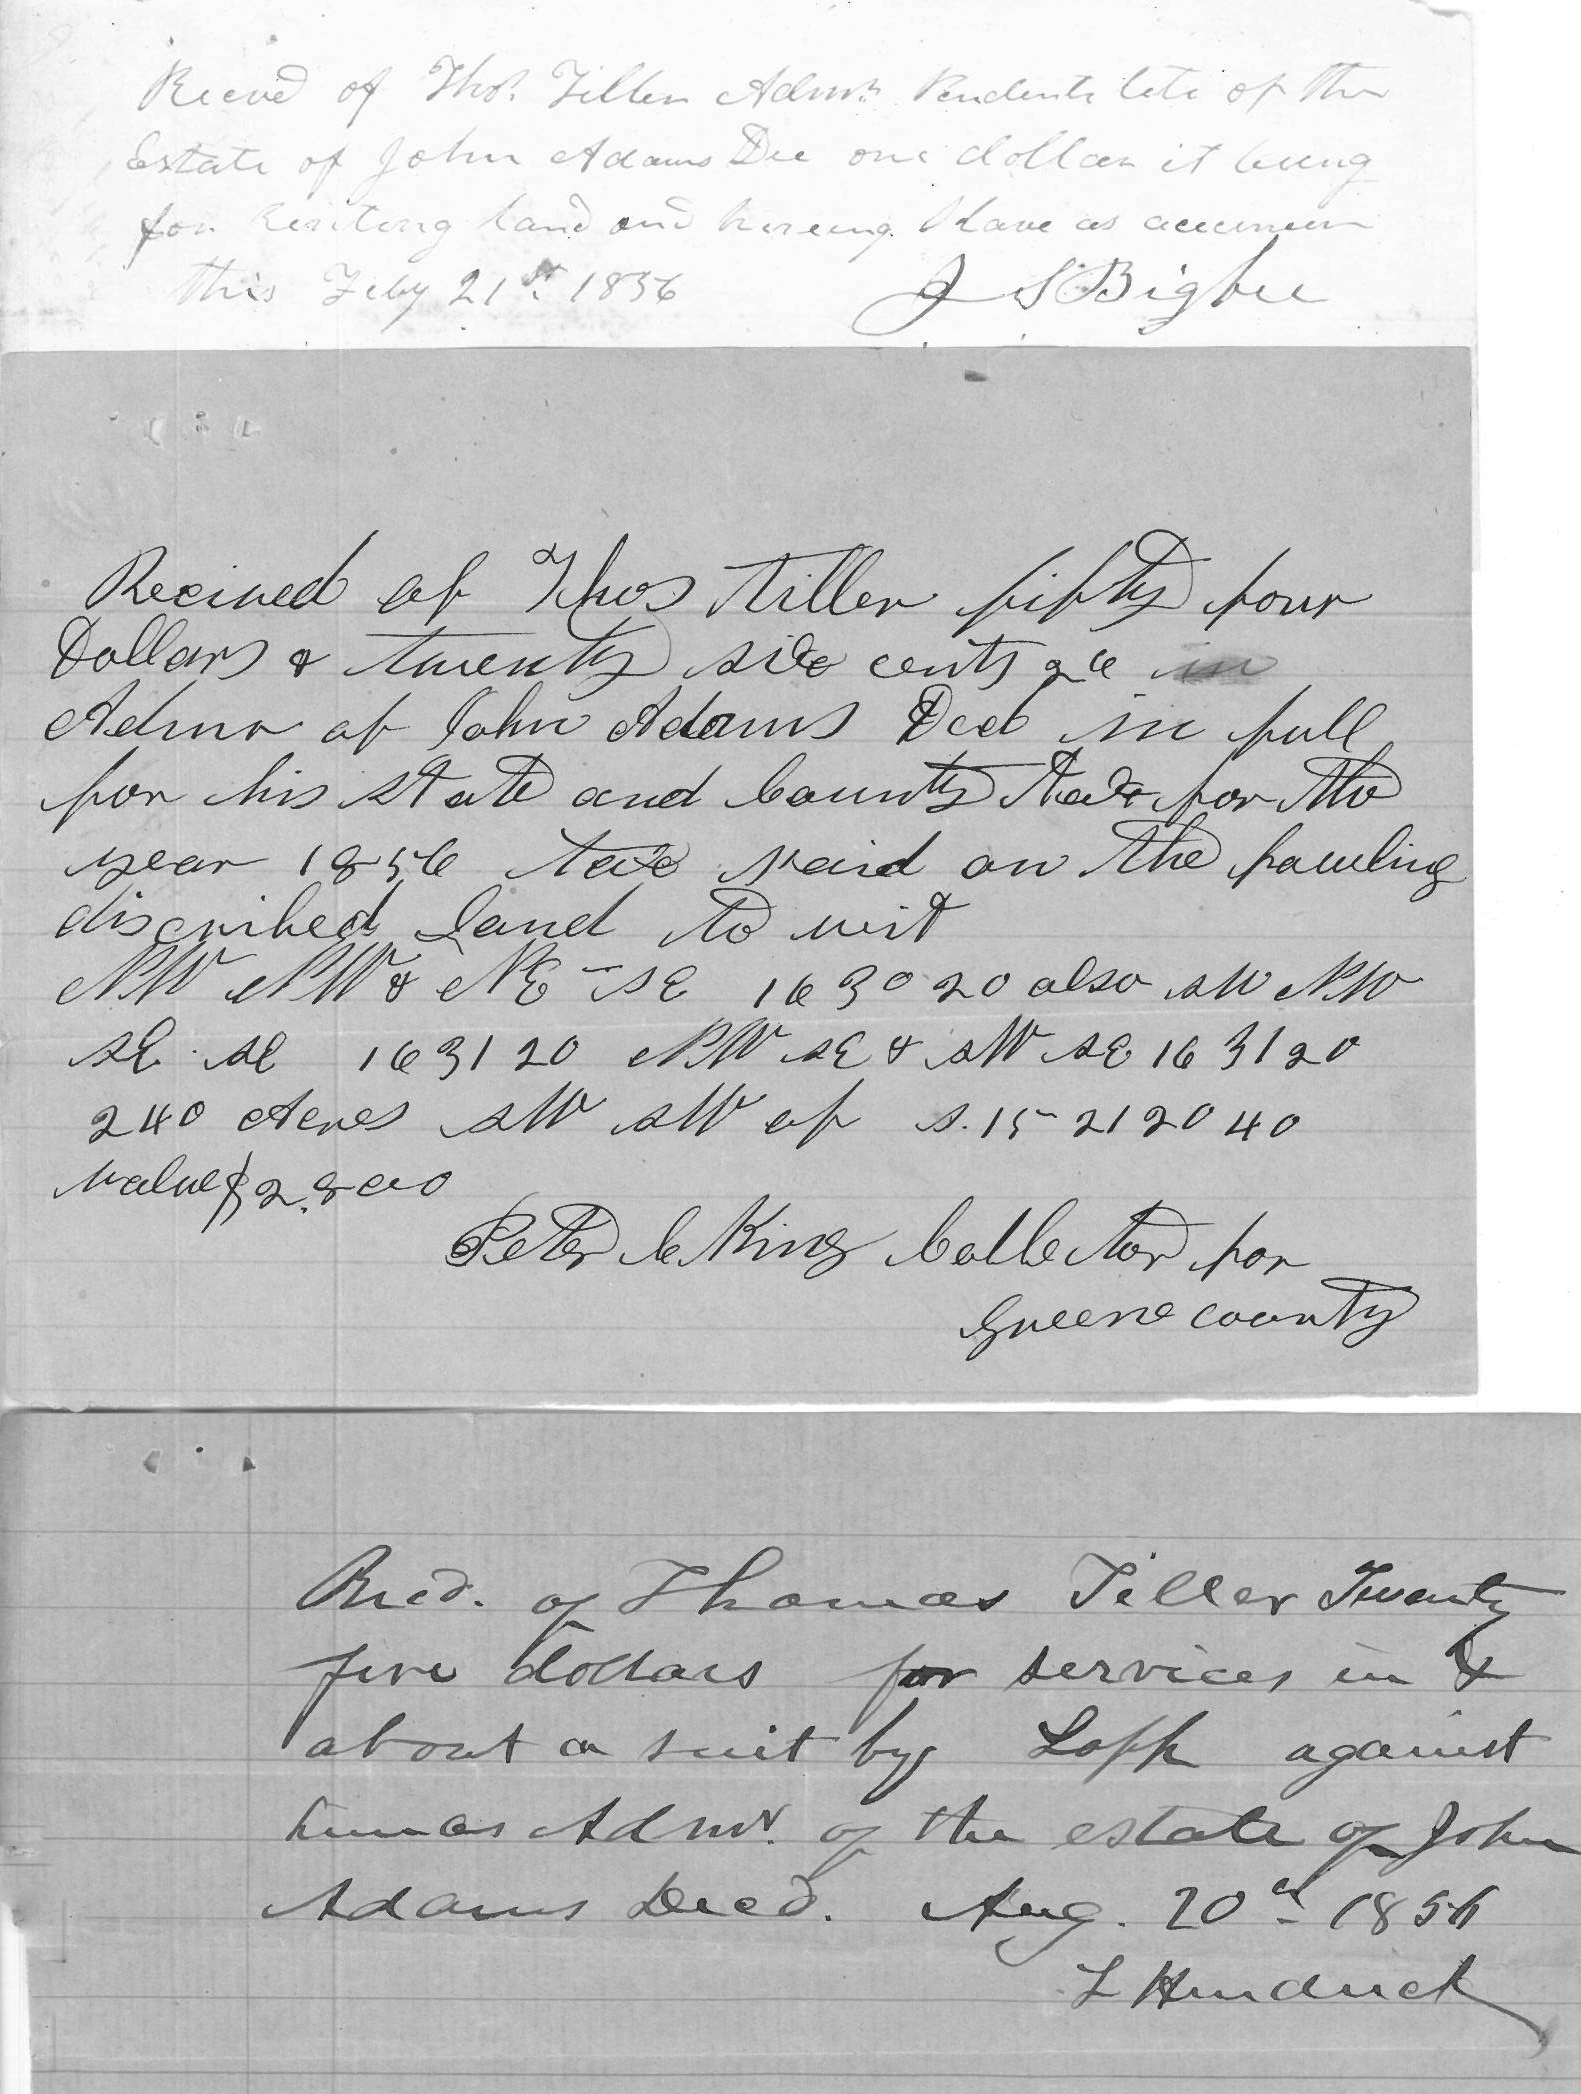 Recevd of Thos. Tiller Admr. Pendente lite of the
Estate of John Adams Dec one dollar it being
for renting land and hireing Slave as
this Feby 21st. 1856 J S Bigbee
Recived of Thos Tiller fifty four
Dollars & twenty six cents
Admr of John Adams Decd in full
for his State and County tax for the
year 1856 tax paid on the fowling
discribed land to wit
NW NW & NE SE 16 30 20 also SW NW
SE SE 16 31 20 NW SE & SW SE 16 31 20
240 Acres SW SW of S. 15 21 20 40
value $2.800
Peter C King Collector for
Greene county
Recd. of Thomas Tiller Twenty
five dollars for services in &
about a suit by against
Admr. of the estate of John
Adams Decd. Aug. 20th 1856
L Hendrick